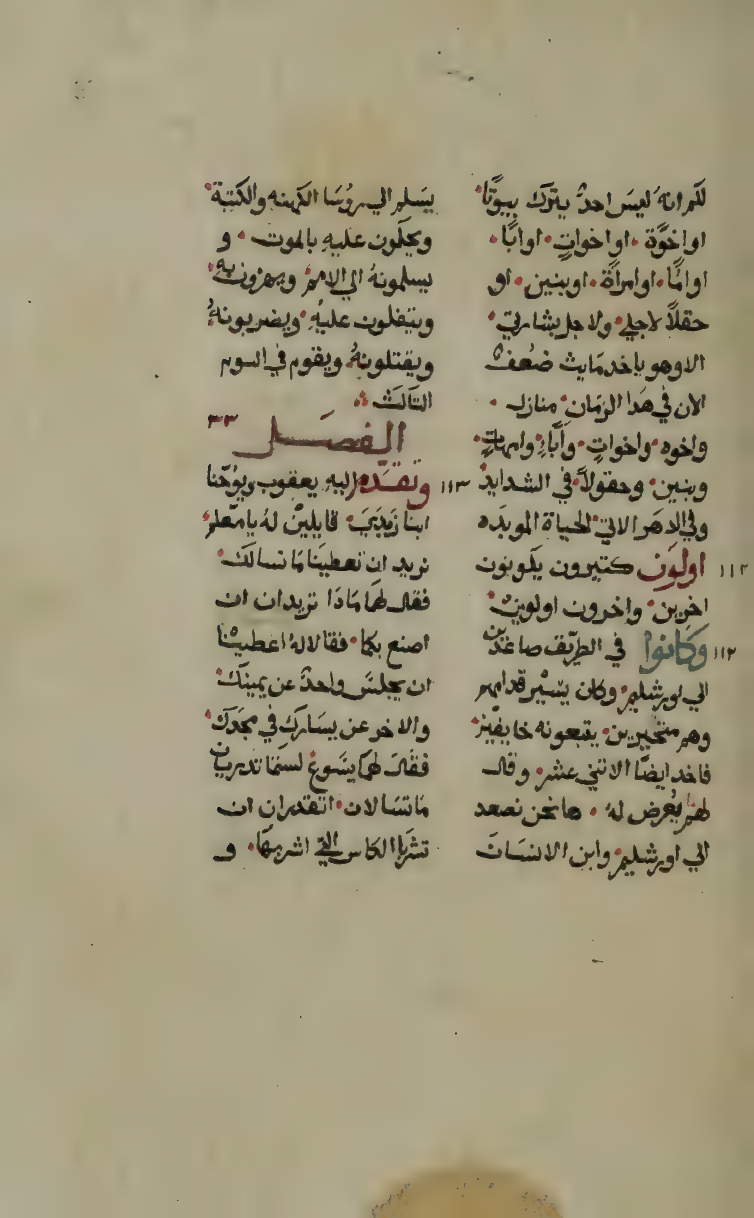 لكم انه ليس احدٌ يترك بيوتًا
او اخوَّة او اخواتٍ او ابًا
او امًّا او امراةً او بنين او
حقلاً لاجلي ولاجل بشارتي
الا وهو ياخد مايتَ ضعف
الان في هدا الزمان منازل
واخوه واخواتٍ وآباءً وامهاتٍ
وبنين وحقولاً في الشدايد
وفي الدهر الاتي الحياة الموبده
١١٢ اولون كتيرون يكونون
اخرين واخرون اولون
١١٢ وكانوا في الطريق صاعدين
الي اورشليم وكان يسير قدامهم
وهم متحيرين يتبعونه خايفين
فاخد ايضًا الاتني عشر وقال
لهم يعرض له ها نحن نصعد
الي اورشليم وابن الانسان
يسلم الي روسا الكهنه والكتبة
ويحكمون عليه بالموت و
يسلمونهُ الي الامم ويهزون به
ويتفلون عليهِ ويضربونهُ
ويقتلونهُ ويقوم في اليوم
التالت
الفصل ٣٣
١١٣ وتقدم اليه يعقوب ويوحنا
ابنا زبدي قايلين لهُ يا معلم
نريد ان تعطينا ما نسالك
فقال لهما مادا تريدان ان
اصنع بكما فقالا لهُ اعطينا
ان يجلس واحدٌ عن يمينك
والاخر عن يسارك في مجدك
فقال لهما يسوع لستما تدريان
ما تسالان اتقدران ان
تشربا الكاس التي اشربها و